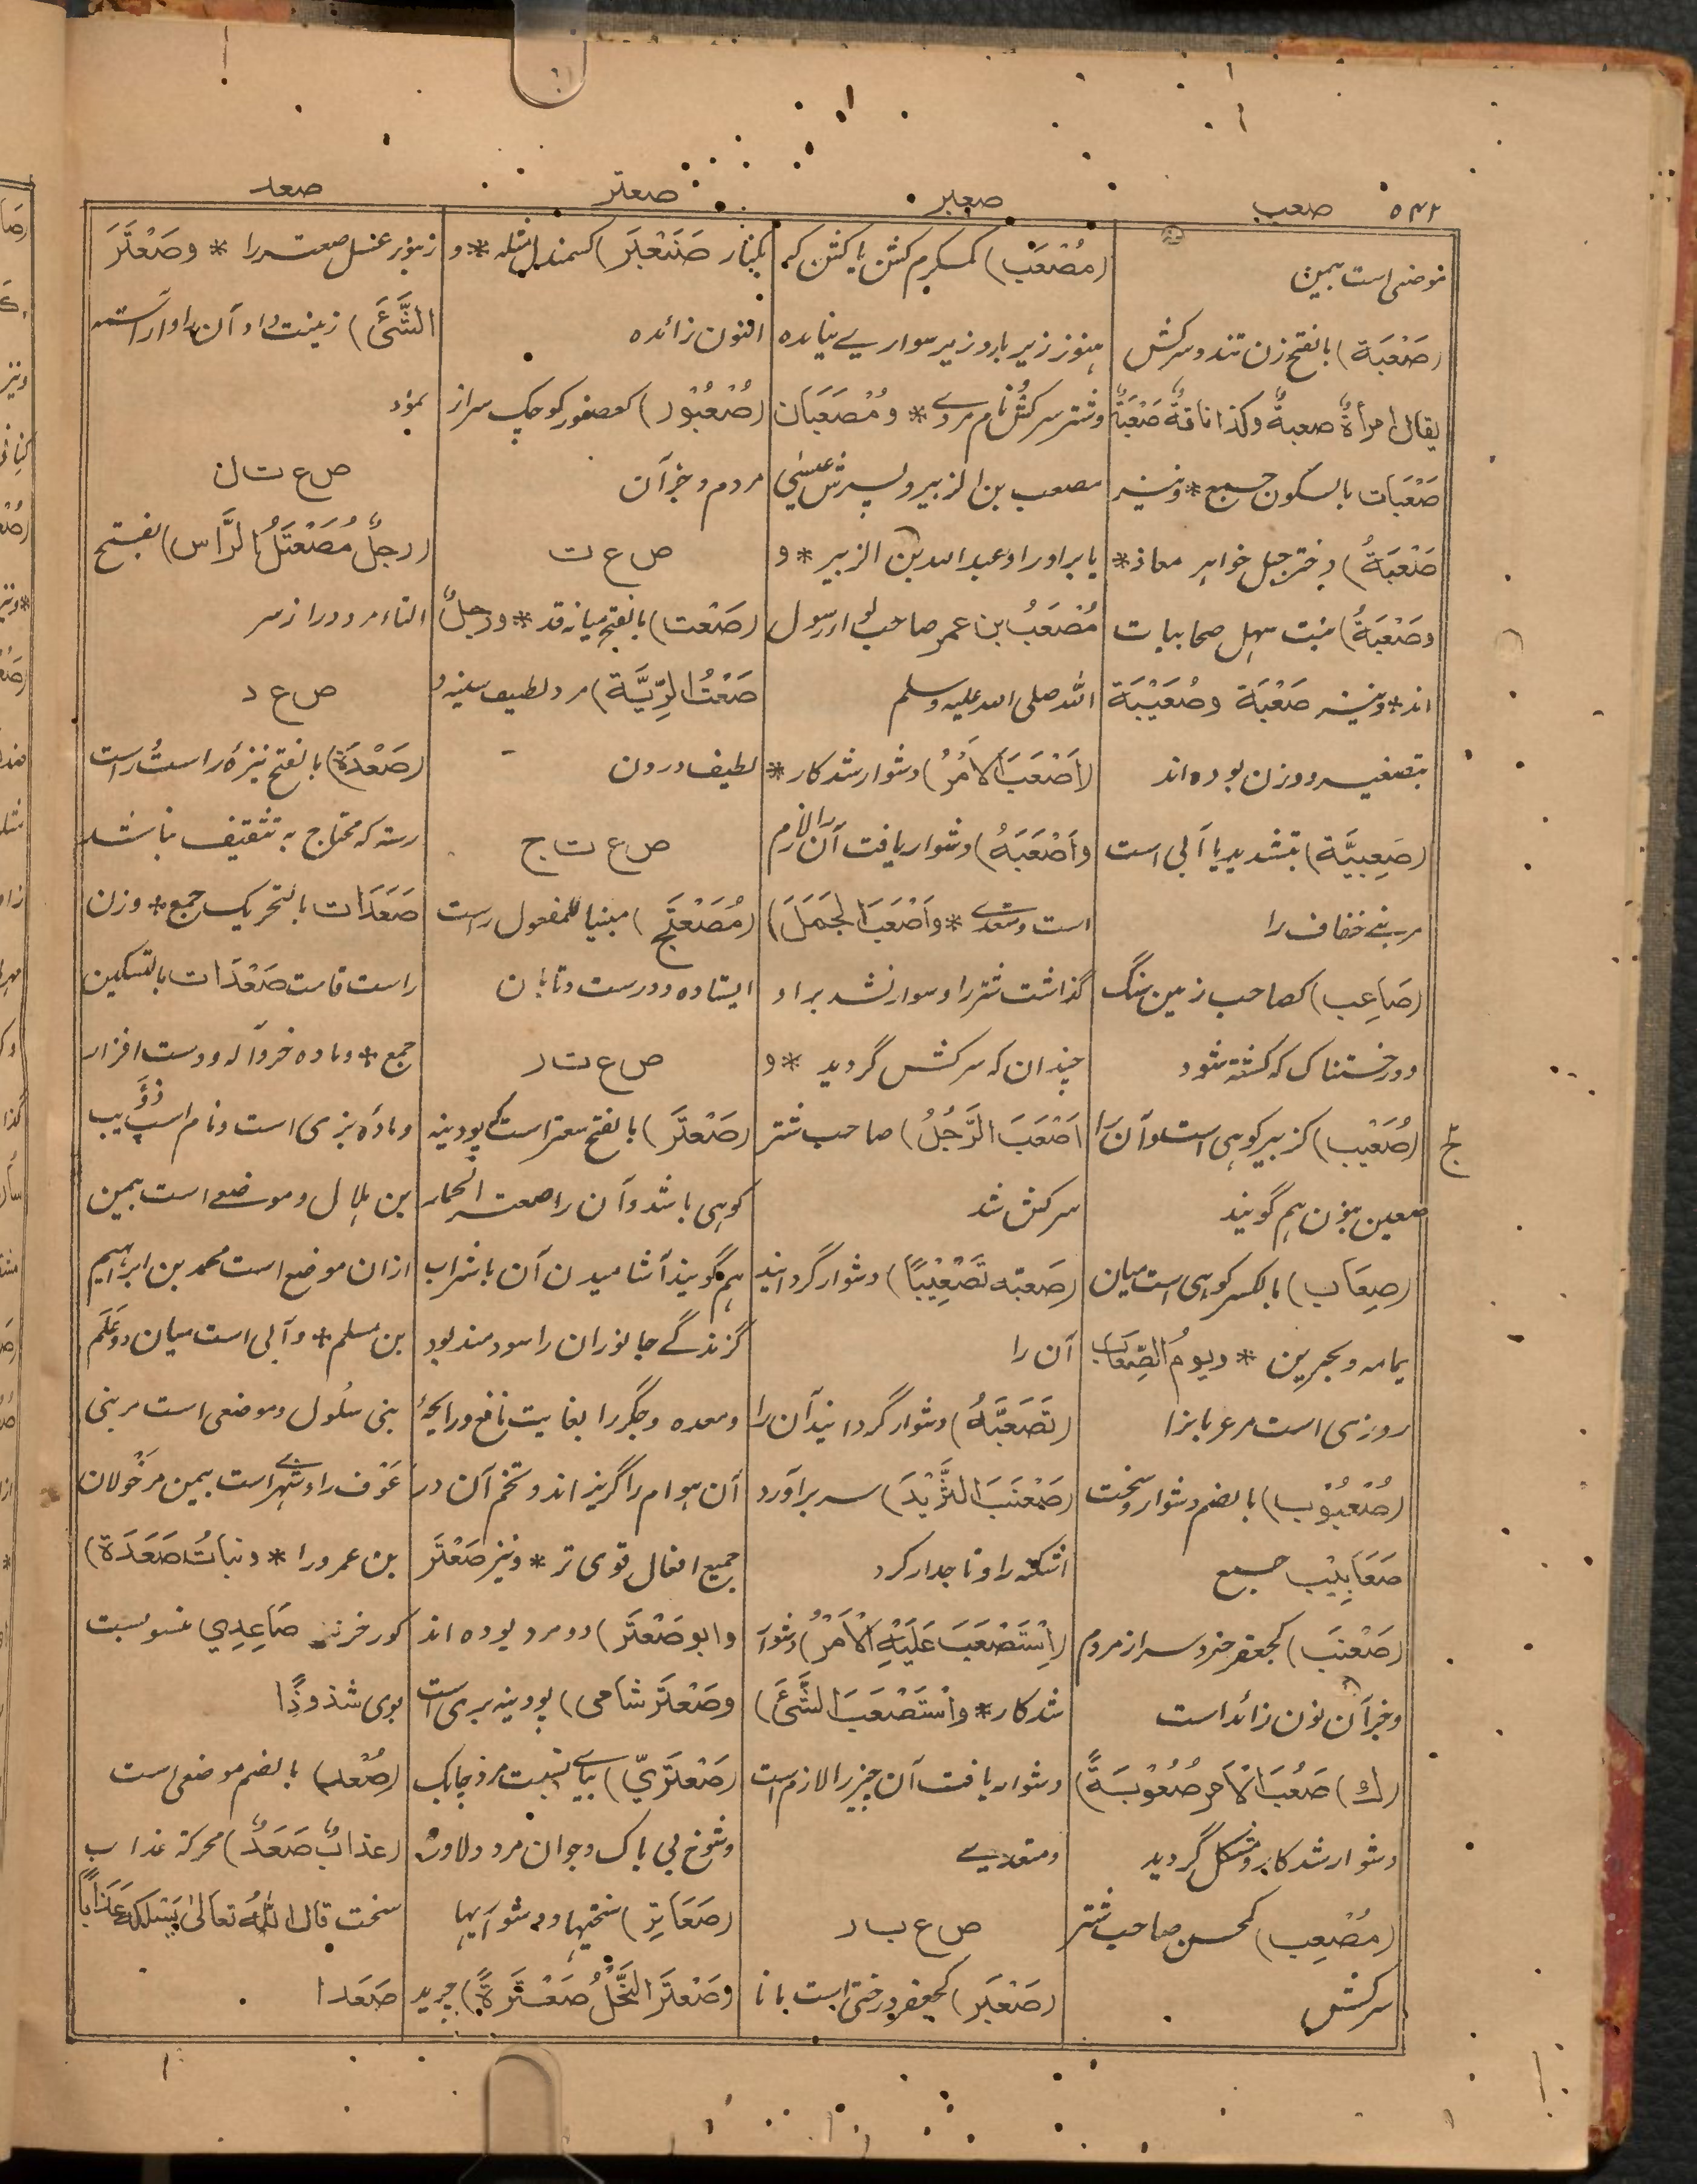 ۵۴۲ صعب صعبر صعتر صعد
موضعی است بیمن
(صَعْبَة) بالفتح زن تند و سرکش
یقال امرأةٌ صعبةٌ وکذا ناقةٌ صَعْبَةٌ
صَعْبَات بالسکون جمع * و نیز
صَعْبَةُ) دختر جبل خواهر معاذ *
وصَعْبَةُ) بنت سهل صحابیات
اند * و نیز صَعْبَة وصُعَیْبَة
بتصغیر دو زن بوده اند
(صَعِبِیَّة) بتشدید یا آبی است
مر بنی خفاف را
(صَاعِب) کصاحب زمین سنگ
و درختناک که کشته شود
(صُعَیْب) کزبیر کوهی است و آن را
صعین بنون هم گویند
(صِعَاب) بالکسر کوهی است میان
یمامه و بحرین * ویومُ الصِّعَاب
روزی است مر عربانرا
(صُعْبُوْب) بالضم دشوار و سخت
صَعَابِیْب جمع
(صَعْنَب) کجعفر خرد سر از مردم
و جز آن نون زائد است
(ك) صَعُبَ الْاَمر صُعُوْبَةً)
دشوار شد کار و مشکل گردید
(مُصْعِب) کمحسن صاحب شتر
سرکش
(مُصْعَب) کمکرم کشن یا کشن که
هنوز زیر بار و زیر سواریے نیامده
و شتر سرکش و نام مردے * ومُصْعَبَان
مصعب بن الزبیر و پسرش عیسٰی
یا برادر او عبد الله بن الزبیر * و
مُصْعَبُ بن عمر صاحب لواء رسول
الله صلی الله علیه وسلم
(اَصْعَبَ الاَمْرُ) دشوار شد کار *
واَصْعَبَهُ) دشوار یافت آن را لازم
است و متعدے * واَصْعَبَ الجَمَلَ)
گذاشت شتر را و سوار نشد بر او
چندان که سرکش گردید * و
اَصْعَبَ الرَّجُلُ) صاحب شتر
سرکش شد
(صَعبَّه تَصْعِیْبًا) دشوار گردانید
آن را
(تَصَعَّبَهُ) دشوار گردانید آن را
(صَعْنَبَ الثَّرِیْدَ) سر برآورد
اشکنه را و تاجدار کرد
(اِسْتَصْعَبَ عَلَیْهِ الْاَمْرُ) دشوار
شد کار * واسْتَصْعَبَ الشَّئَ)
دشوار یافت آن چیز را لازم است
و متعدیے
ص ع ب ر
(صَعْبَر) کجعفر درختی است مانا
بکنار صَنَعْبَر) کسمندل مثله * و
النون زائده
(صُعْبُوْر) کعصفور کوچک سر از
مردم و جز آن
ص ع ت
(صَعْت) بالفتح میانه قد * ورجلٌ
صَعْتُ الرِّبَّة) مرد لطیف سینه و
لطیف درون
ص ع ت ج
(مُصَعْتَج) مبنیا للمفعول راست
ایستاده و درست و تابان
ص ع ت ر
(صَعْتَر) بالفتح سعتر است که پودینه
کوهی باشد و آن را صعتر الحمار
هم گویند آشامیدن آن با شراب
گزندگے جانوران را سودمند بود
و معده و جگر را بغایت نافع و رایحهٔ
آن هوام را گریزاند و تخم آن در
جمیع افعال قوی تر * و نیز صَعْتَر
وابو صَعْتَر) دو مرد بوده اند
وصَعْتَر شامی) پودینه بری است
(صَعْتَرِیّ) بیاے نسبت مرد چابک
و شوخ بی باک و جوان مرد و دلاور
(صَعَاتِر) سختیها و دشواریها
وصَعْتَرَ النَّحْلُ صَعْتَرَةً) چرید
زنبور عسل صعتر را * وصَعْتَرَ
الشَّئَ) زینت داد آن را و آراسته
نمود
ص ع ت ل
(رجلٌ مُصَعْتَلُ الرَّاس) بفتح
التاء مرد دراز سر
ص ع د
(صَعْدَة) بالفتح نیزهٔ راست راست
رسته که محتاج به تثقیف نباشد
صَعَدَات بالتحریک جمع * و زن
راست قامت صَعْدَات بالتسکین
جمع * و ماده خر و آله و دست افزار
و مادهٔ بزی است و نام اسپ ذؤیب
بن هلال و موضعے است بیمن
ازان موضع است محمد بن ابراهیم
بن مسلم * و آبی است میان دو علم
بنی سلول و موضعی است مر بنی
عَوْف را و شهرے است بیمن مر خولان
بن عمرو را * وبناتُ صَعْدَة)
گور خر نر صَاعِدِي منسوبست
بوی شذوذًا
(صُعْد) بالضم موضعی است
(عذابٌ صَعَدٌ) محرکة عذاب
سخت قال الله تعالیٰ یَسْلُکْهُ عَذَابًا
صَعَدا